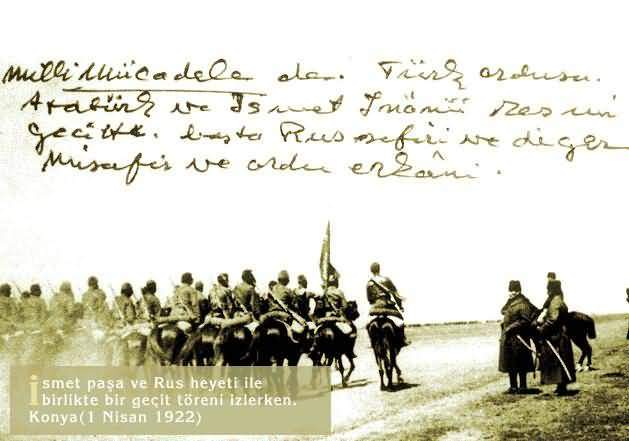 Milli Mücadele de. Türk ordusu.
Atatürk ve İsmet İnönü Resmi
geçitte. başta Rus sefiri ve diger
Misafir ve ordu erkâni.
ismet paşa ve Rus heyeti ile
birlikte bir geçit töreni izlerken.
Konya(1 Nisan 1922)